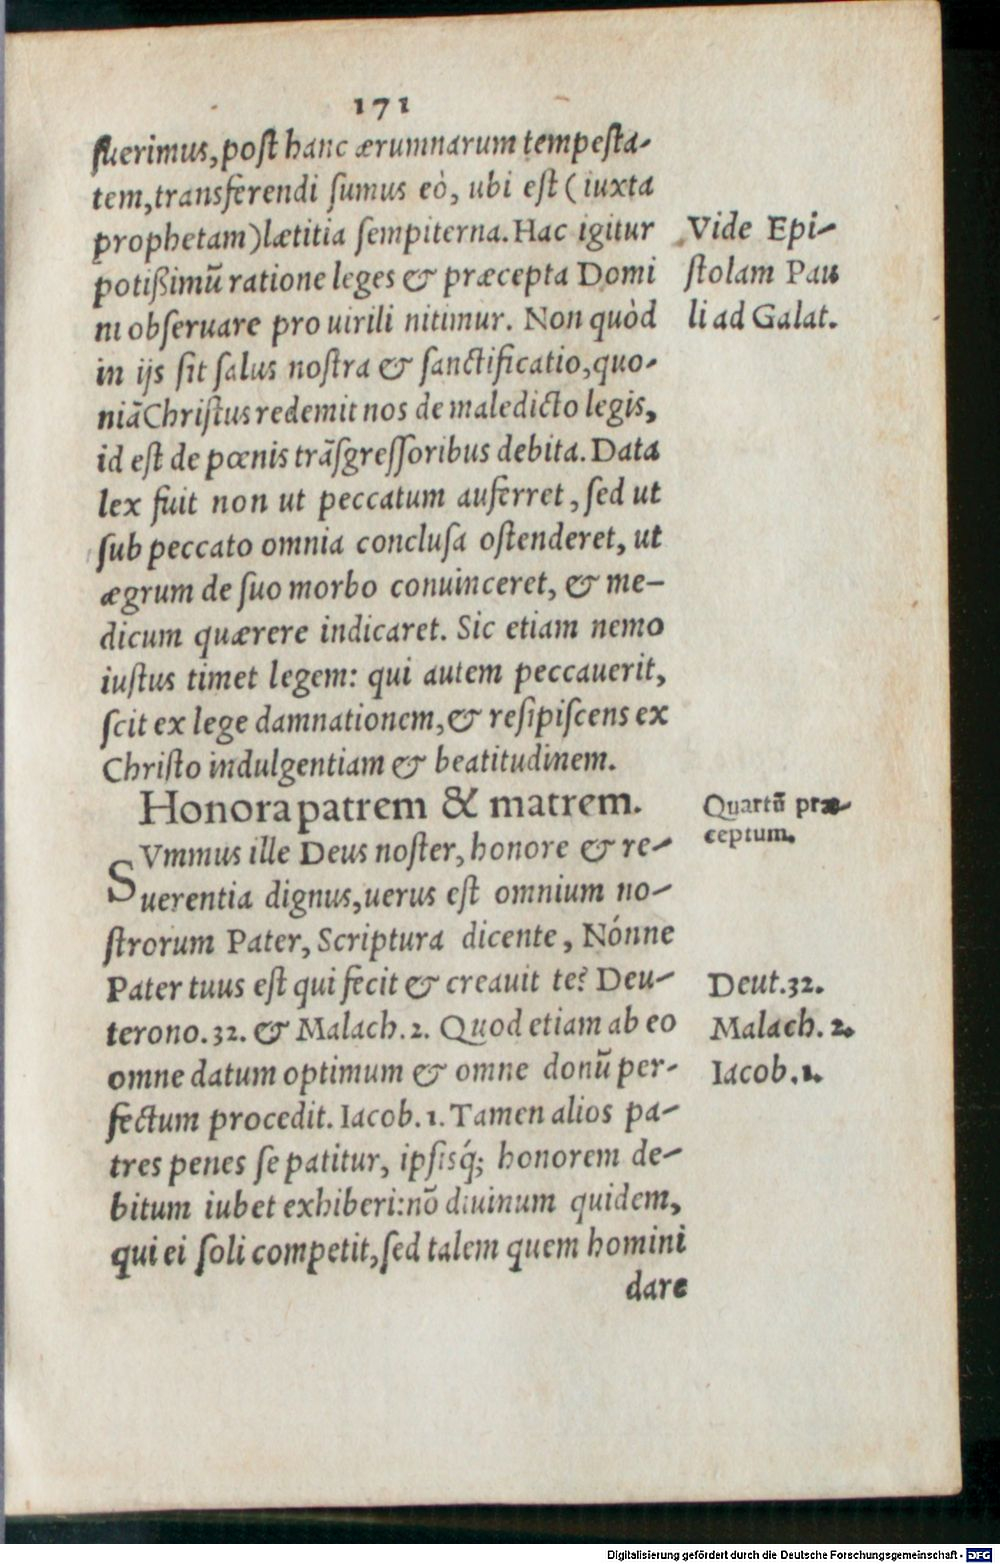 171
fuerimus, poſt hanc ærumnarum tempeſta-
tem, transferendi ſumus eò, ubi eſt (iuxta
prophetam) lætitia ſempiterna. Hac igitur
potißimū ratione leges & præcepta Domi
ni obſeruare pro uirili nitimur. Non quòd
in ijs ſit ſalus noſtra & ſanctificatio, quo-
niā Chriſtus redemit nos de maledicto legis,
id eſt de pœnis trāſgreſſoribus debita. Data
lex fuit non ut peccatum auferret, ſed ut
ſub peccato omnia concluſa oſtenderet, ut
ægrum de ſuo morbo conuinceret, & me-
dicum quærere indicaret. Sic etiam nemo
iuſtus timet legem: qui autem peccauerit,
ſcit ex lege damnationem, & reſipiſcens ex
Chriſto indulgentiam & beatitudinem.
Vide Epi-
ſtolam Pau
li ad Galat.
Honora patrem & matrem.
Quartū præ-
ceptum.
SVmmus ille Deus noſter, honore & re-
uerentia dignus, uerus eſt omnium no-
ſtrorum Pater, Scriptura dicente, Nónne
Pater tuus eſt qui fecit & creauit te? Deu-
terono. 32. & Malach. 2. Quod etiam ab eo
omne datum optimum & omne donū per-
fectum procedit. Iacob. 1. Tamen alios pa-
tres penes ſe patitur, ipſisq́; honorem de-
bitum iubet exhiberi: nō diuinum quidem,
qui ei ſoli competit, ſed talem quem homini
dare
Deut. 32.
Malach. 2.
Iacob. 1.
Digitalisierung gefördert durch die Deutsche Forschungsgemeinschaft - DFG